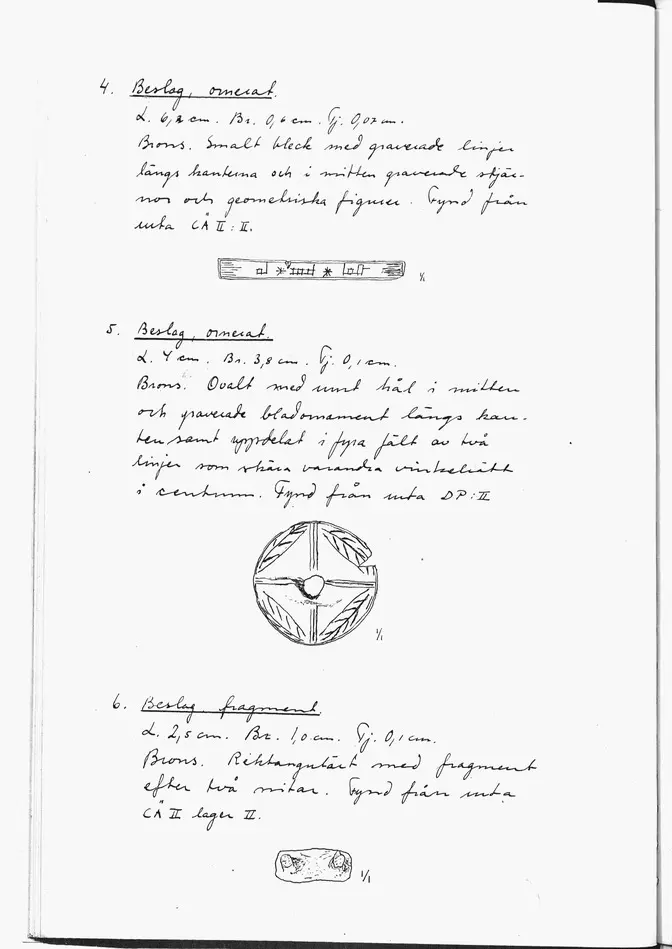 4. Beslag, ornerat.
L. 6,2 cm. Br. 0,6 cm. Tj. 0,07 cm.
Brons. Smalt bleck med graverade linjer
längs kanterna och i mitten graverade stjär-
nor och geometriska figurer. Fynd från
ruta CÅ II:II.
1/1
5. Beslag, ornerat.
L. 4 cm. Br. 3,8 cm. Tj. 0,1 cm.
Brons. Ovalt med runt hål i mitten
och graverade bladornament längs kan-
ten samt uppdelat i fyra fält av två
linjer som skära varandra vinkelrätt
i centrum. Fynd från ruta DP:II
1/1
6. Beslag, fragment.
L. 2,5 cm. Br. 1,0 cm. Tj. 0,1 cm.
Brons. Rektangulärt med fragment
efter två nitar. Fynd från ruta
CÅ II lager II.
1/1